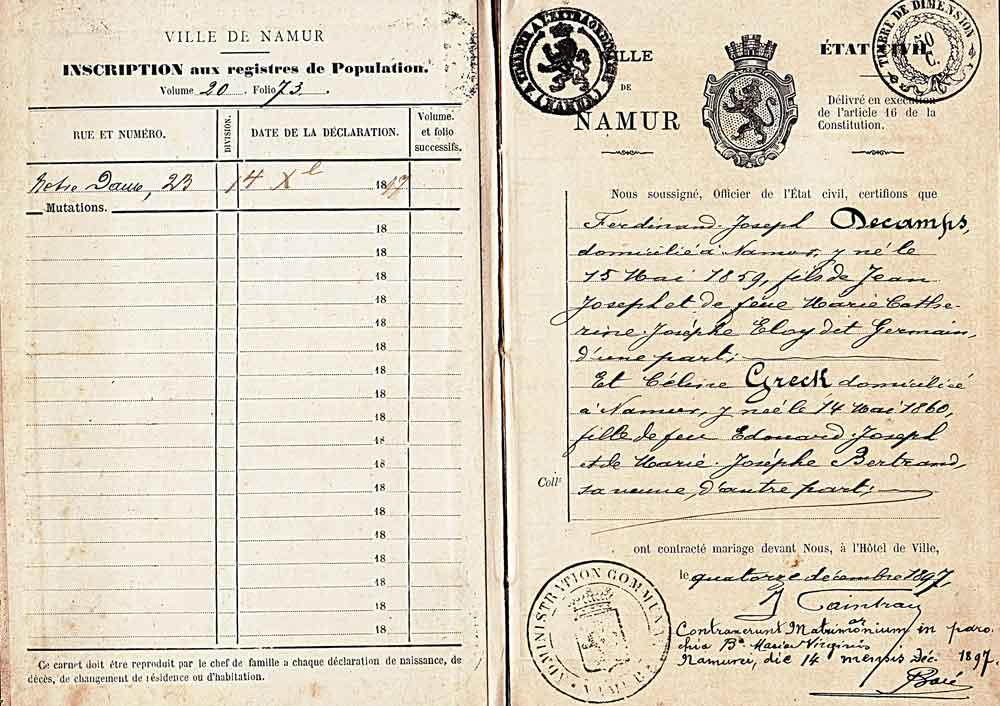 VILLE DE NAMUR
INSCRIPTION aux registres de Population.
Volume 20 Folio 73.
RUE ET NUMÉRO.
DIVISION.
DATE DE LA DÉCLARATION.
Volume. et folio successifs.
Notre Dame, 23 14 Xe 1897
Mutations.
18
18
18
18
18
18
18
18
18
18
18
18
18
18
18
18
18
18
Ce carnet doit être reproduit par le chef de famille a chaque déclaration de naissance, de
décès, de changement de résidence ou d'habitation.
TIMBRE DE DIMENSION
50 C.
VILLE
DE
NAMUR
ÉTAT CIVIL
Délivré en execution
de l'article 16 de la
Constitution.
Nous soussigné, Officier de l'État civil, certifions que
Ferdinand Joseph Decamps,
domicilié à Namur, y né le
15 Mai 1859, fils de Jean
Joseph et de feue Marie Cathe-
rine Josèphe Eloy dit Germain,
d'une part;
Et Céline Greck domiciliée
à Namur, y née le 14 Mai 1860,
fille de feu Edouard Joseph
et de Marie Josèphe Bertrand,
sa veuve, d'autre part;
Colle
ont contracté mariage devant Nous, à l'Hôtel de Ville,
le quatorze décembre 1897
ADMINISTRATION COMMUNALE
NAMUR
Contraxerunt Matrimonium in paro-
chia Bae Mariae Virginis
Namurci, die 14 mensis Dec. 1897.